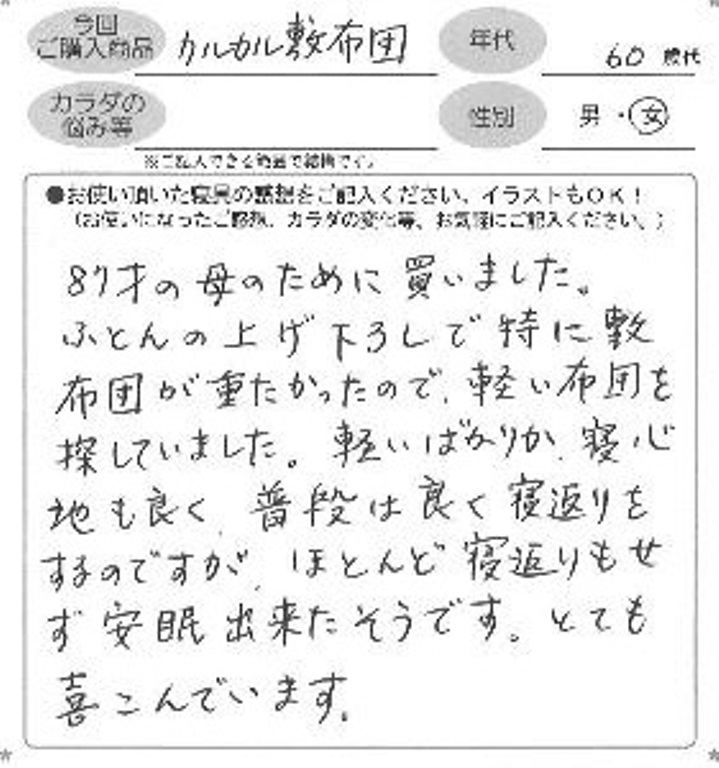 今回
ご購入商品 カルカル敷布団 年代 60 歳代
カラダの
悩み等 性別 男・女
※ご記入できる範囲で結構です。
●お使い頂いた寝具の感想をご記入ください、イラストもOK！
（お使いになったご感想、カラダの変化等、お気軽にご記入ください。）
87才の母のために買いました。
ふとんの上げ下ろしで特に敷
布団が重たかったので、軽い布団を
探していました。軽いばかりか、寝心
地も良く、普段は良く寝返りを
するのですが、ほとんど寝返りもせ
ず安眠出来たそうです。とても
喜こんでいます。